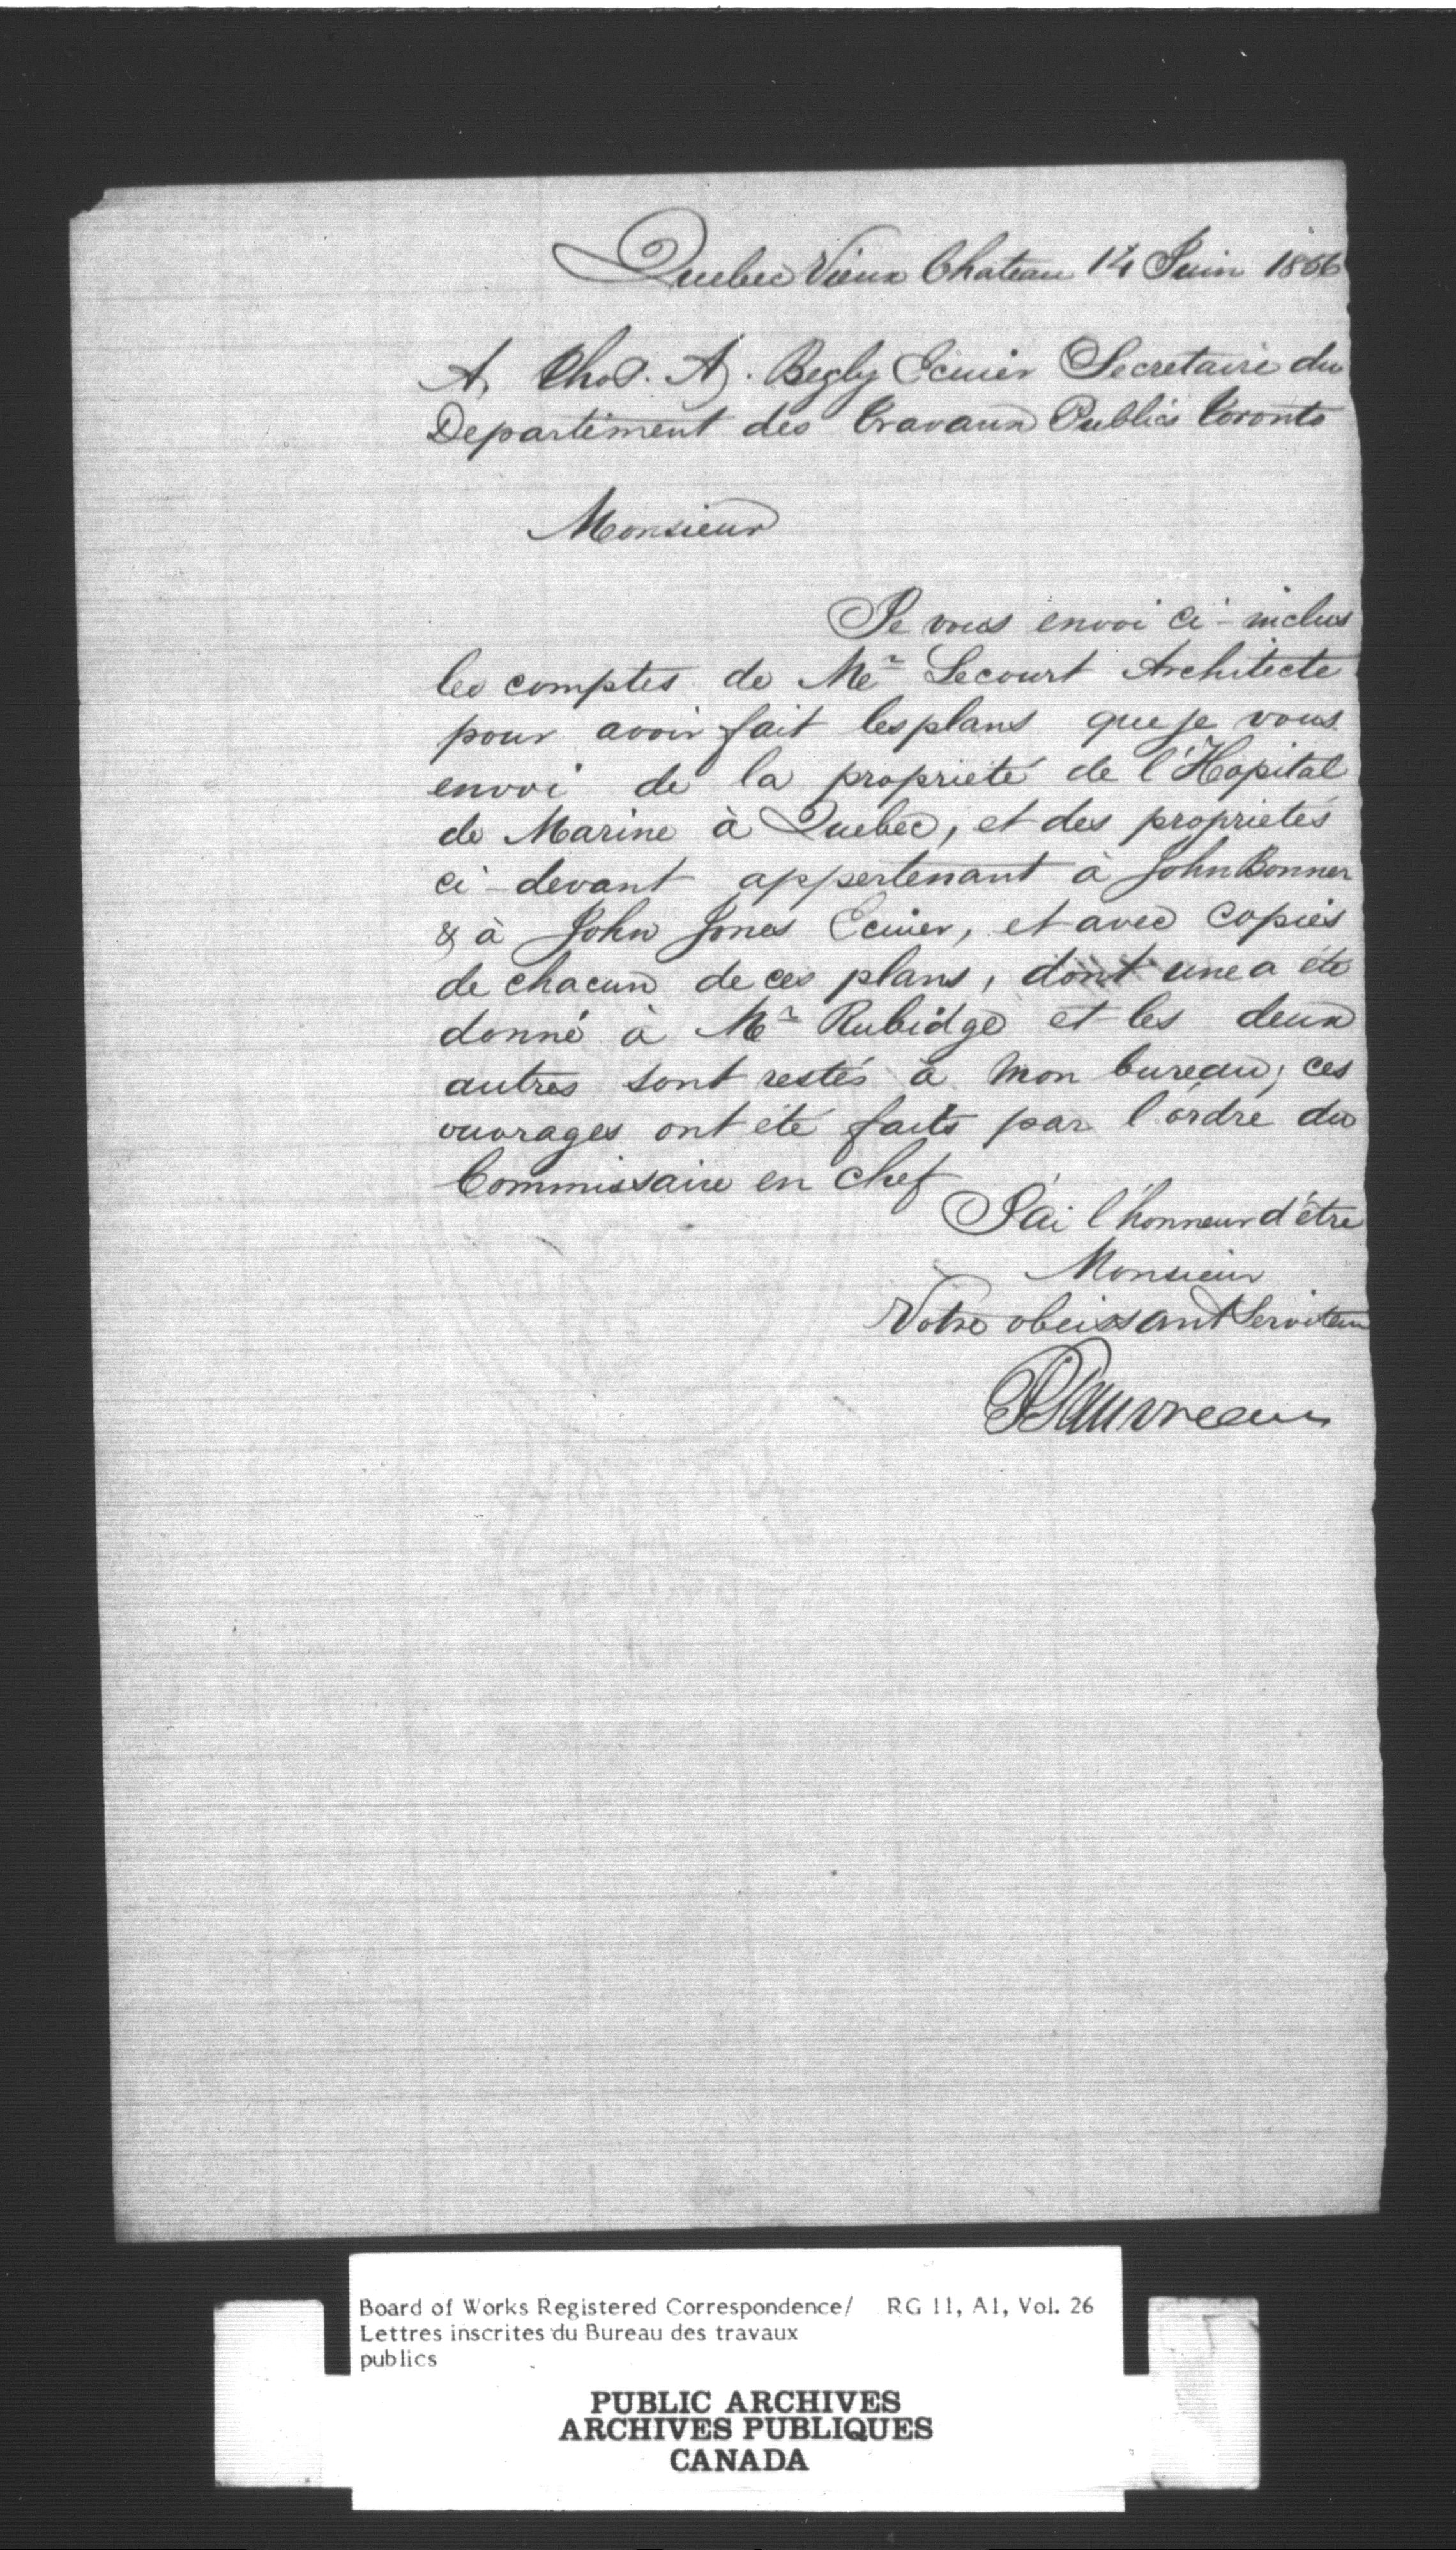 Quebec Vieux Chateau 14 Juin 1856
A Thos. A. Begly Ecuier Secretaire du
Departement des Travaux Publics Toronto
Monsieur
Je vous envoi ci-inclus
les comptes de Mr Lecourt Architecte
pour avoir fait les plans que je vous
envoi de la propriété de l'Hopital
de Marine à Quebec, et des proprietés
ci-devant appertenant à John Bonner
& à John Jones Ecuier, et avec copies
de chacun de ces plans, dont une a été
donné à Mr Rubidge et les deux
autres sont restés à mon bureau; ces
ouvrages ont été faits par l'ordre du
Commissaire en chef
J'ai l'honneur d'être
Monsieur
Votre obeissant Serviteur
P Gauvreau
Board of Works Registered Correspondence/ RG 11, A1, Vol. 26
Lettres inscrites du Bureau des travaux
publics
PUBLIC ARCHIVES
ARCHIVES PUBLIQUES
CANADA